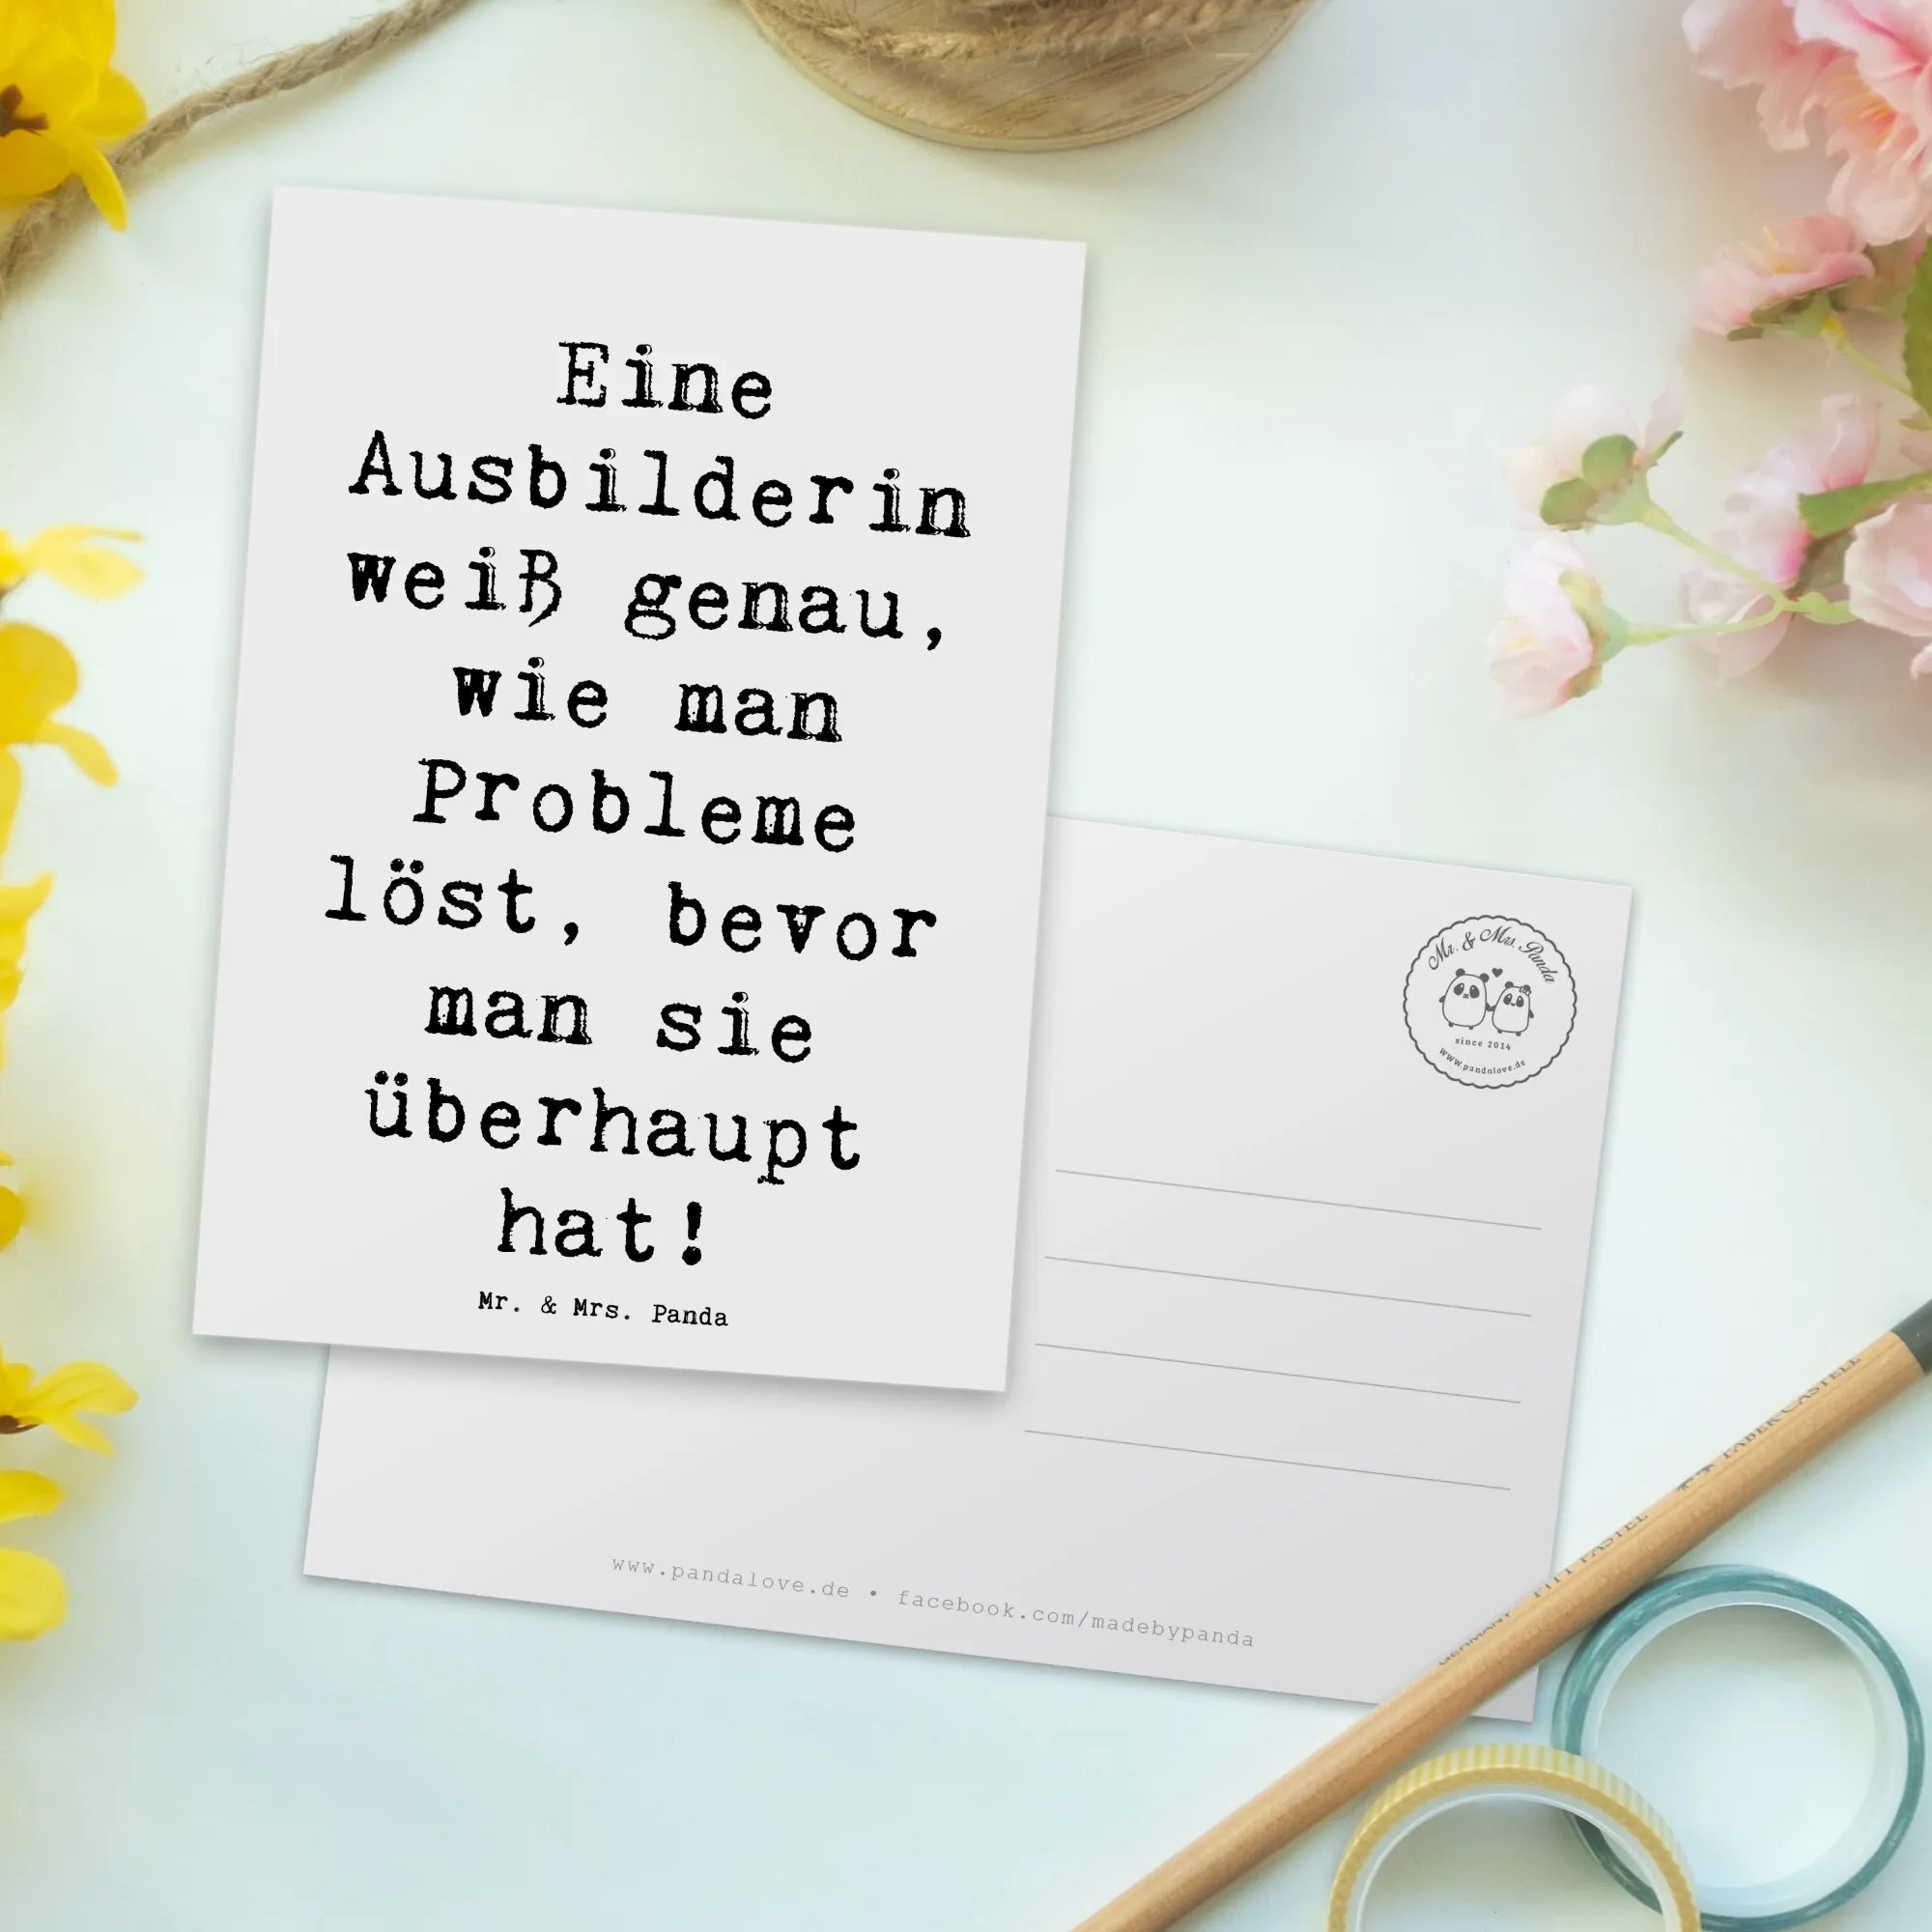 Eine
Ausbilderin
weiß genau,
wie man
Probleme
löst, bevor
man sie
überhaupt
hat!
Mr. & Mrs. Panda
Mr. & Mrs. Panda
since 2014
www.pandalove.de
www.pandalove.de • facebook.com/madebypanda
GERMANY PITT PASTEL FABER-CASTELL